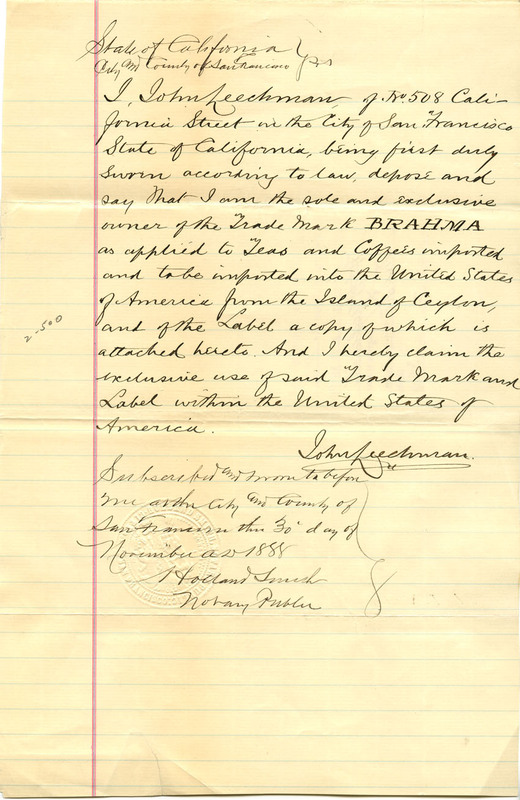 State of California
City and County of San Francisco } ss
I, John Leechman, of No. 508 Cali-
fornia Street in the City of San Francisco
State of California, being first duly
sworn according to law, depose and
say that I am the sole and exclusive
owner of the Trade Mark BRAHMA
as applied to Teas and Coffees imported
and to be imported into the United States
of America from the Island of Ceylon,
and of the Label a copy of which is
attached hereto. And I hereby claim the
exclusive use of said Trade Mark and
Label within the United States of
America.
John Leechman.
Subscribed and sworn to before
me at the City and County of
San Francisco this 30th day of
November AD 1888
Holland Smith
Notary Public
2-500